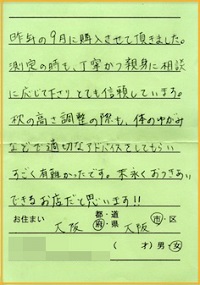 昨年の9月に購入させて頂きました。
測定の時も、丁寧かつ親身に相談
に応じて下さりとても信頼しています。
枕の高さ調整の際も、体のゆがみ
などで適切なアドバイスをしてもらい
すごく有難かったです。末永くおつきあい
できるお店だと思います!!
お住まい 大阪 都・道府・県 大阪 市・区
( 才) 男・女